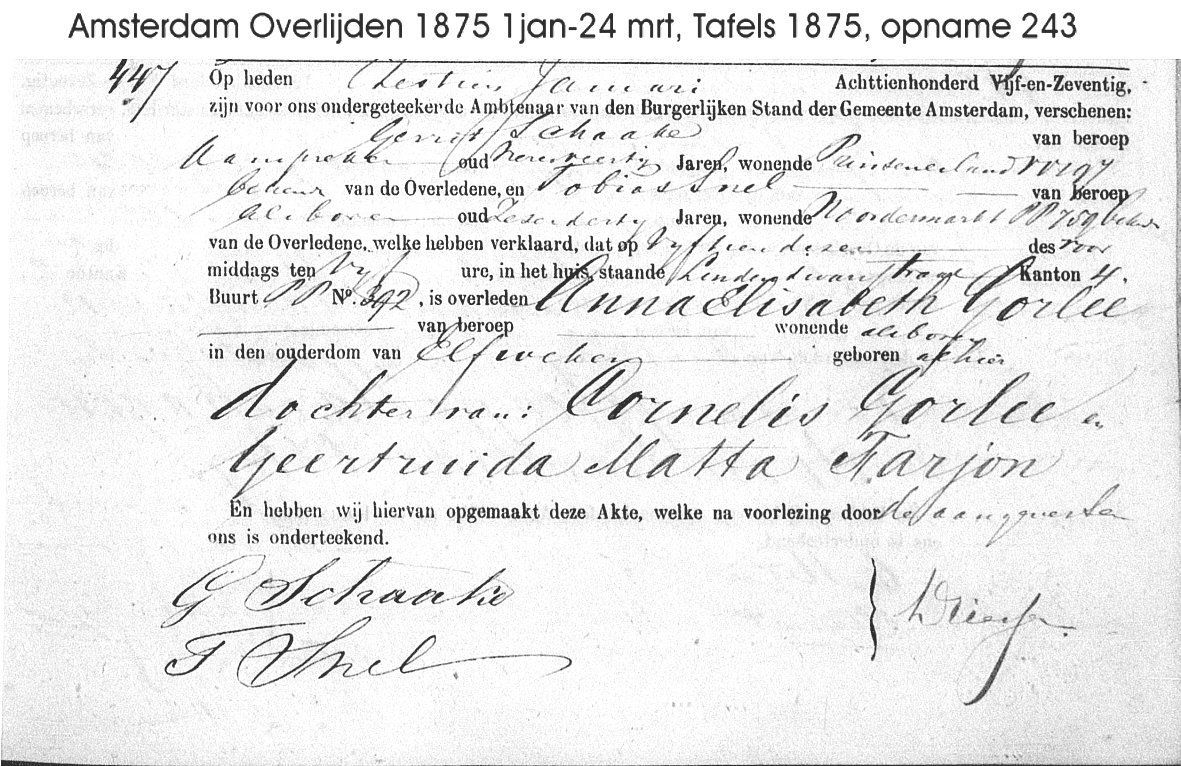 Amsterdam Overlijden 1875 1jan-24 mrt, Tafels 1875, opname 243
447
Op heden Zestien Januari Achttienhonderd Vijf-en-Zeventig,
zijn voor ons ondergeteekende Ambtenaar van den Burgerlijken Stand der Gemeente Amsterdam, verschenen:
Gerrit Schaake van beroep
Aanspreker oud Jaren, wonende
bekende van de Overledene, en Tobias Snel van beroep
als boven oud Zesendertig Jaren, wonende Noordermarkt PP 759 bekende
van de Overledene, welke hebben verklaard, dat op Vyftien dezer des voor
middags ten Vyf ure, in het huis, staande Lindendwarsstraat Kanton 4.
Buurt PP No. 392, is overleden Anna Elisabeth Gorlee
van beroep wonende alhier
in den ouderdom van Elf weken geboren alhier
dochter van: Cornelis Gorlee en
Geertruida Matta Farjon
En hebben wij hiervan opgemaakt deze Akte, welke na voorlezing door de aangevers en
ons is onderteekend.
G Schaake
T Snel